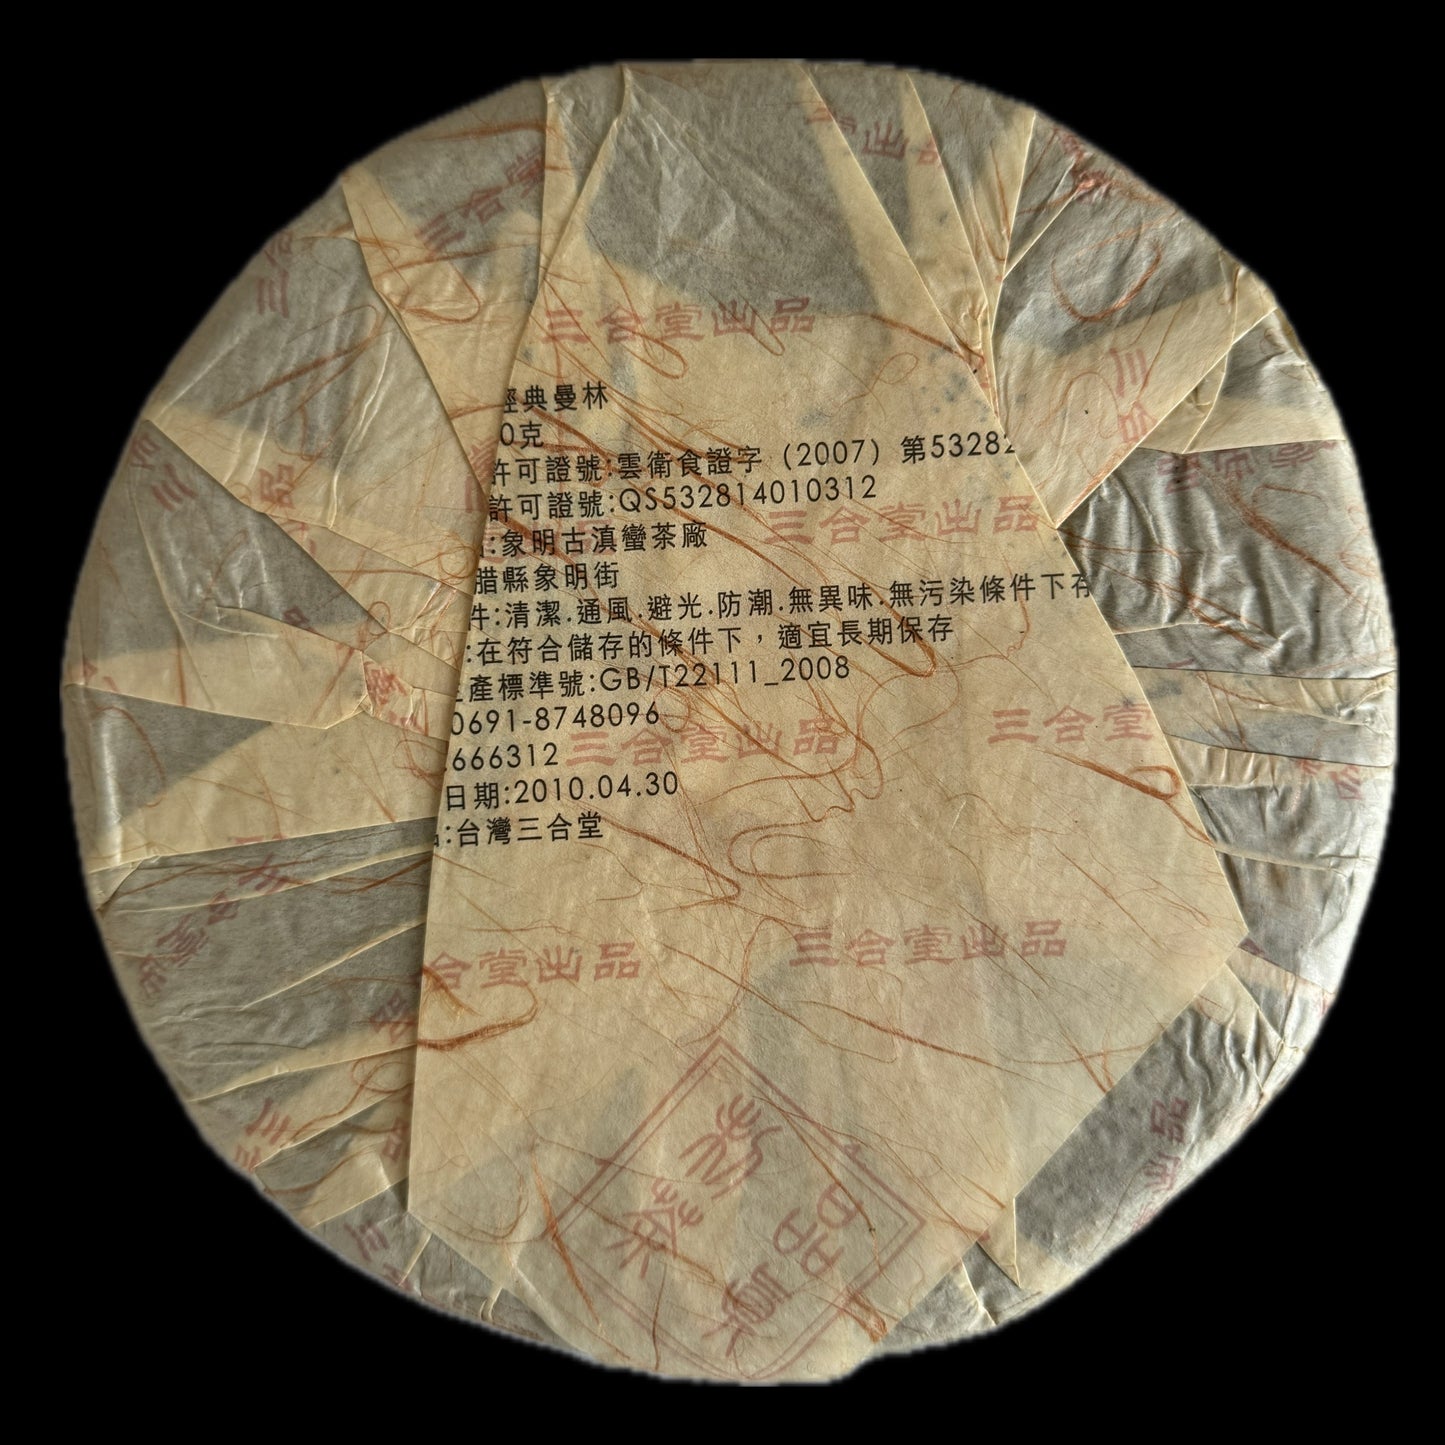 三合堂出品
經典曼林
0克
許可證號:雲衛食證字（2007）第53282
許可證號:QS532814010312
三合堂出品
:象明古滇蠻茶廠
腊縣象明街
件:清潔.通風.避光.防潮.無異味.無污染條件下存
:在符合儲存的條件下，適宜長期保存
產標準號:GB/T22111_2008
0691-8748096
三合堂
666312
三合堂出品
日期:2010.04.30
:台灣三合堂
合堂出品
三合堂出品